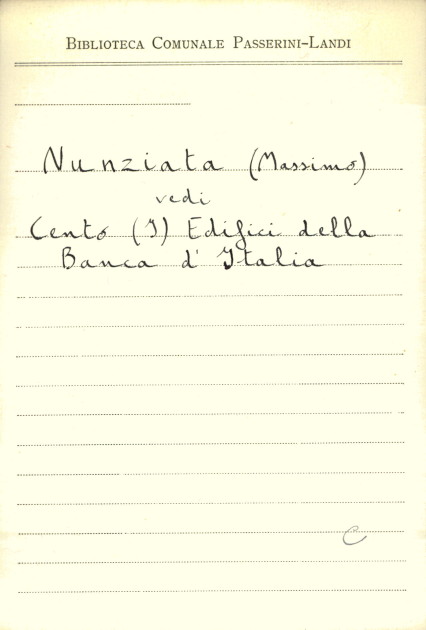 BIBLIOTECA COMUNALE PASSERINI-LANDI
Nunziata (Massimo)
vedi
Cento (I) Edifici della
Banca d' Italia
C